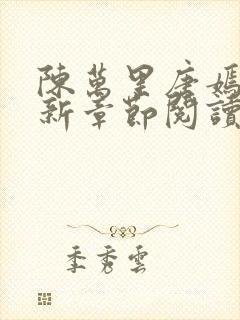 陳萬里唐嫣
新章節閱讀
季秀雲